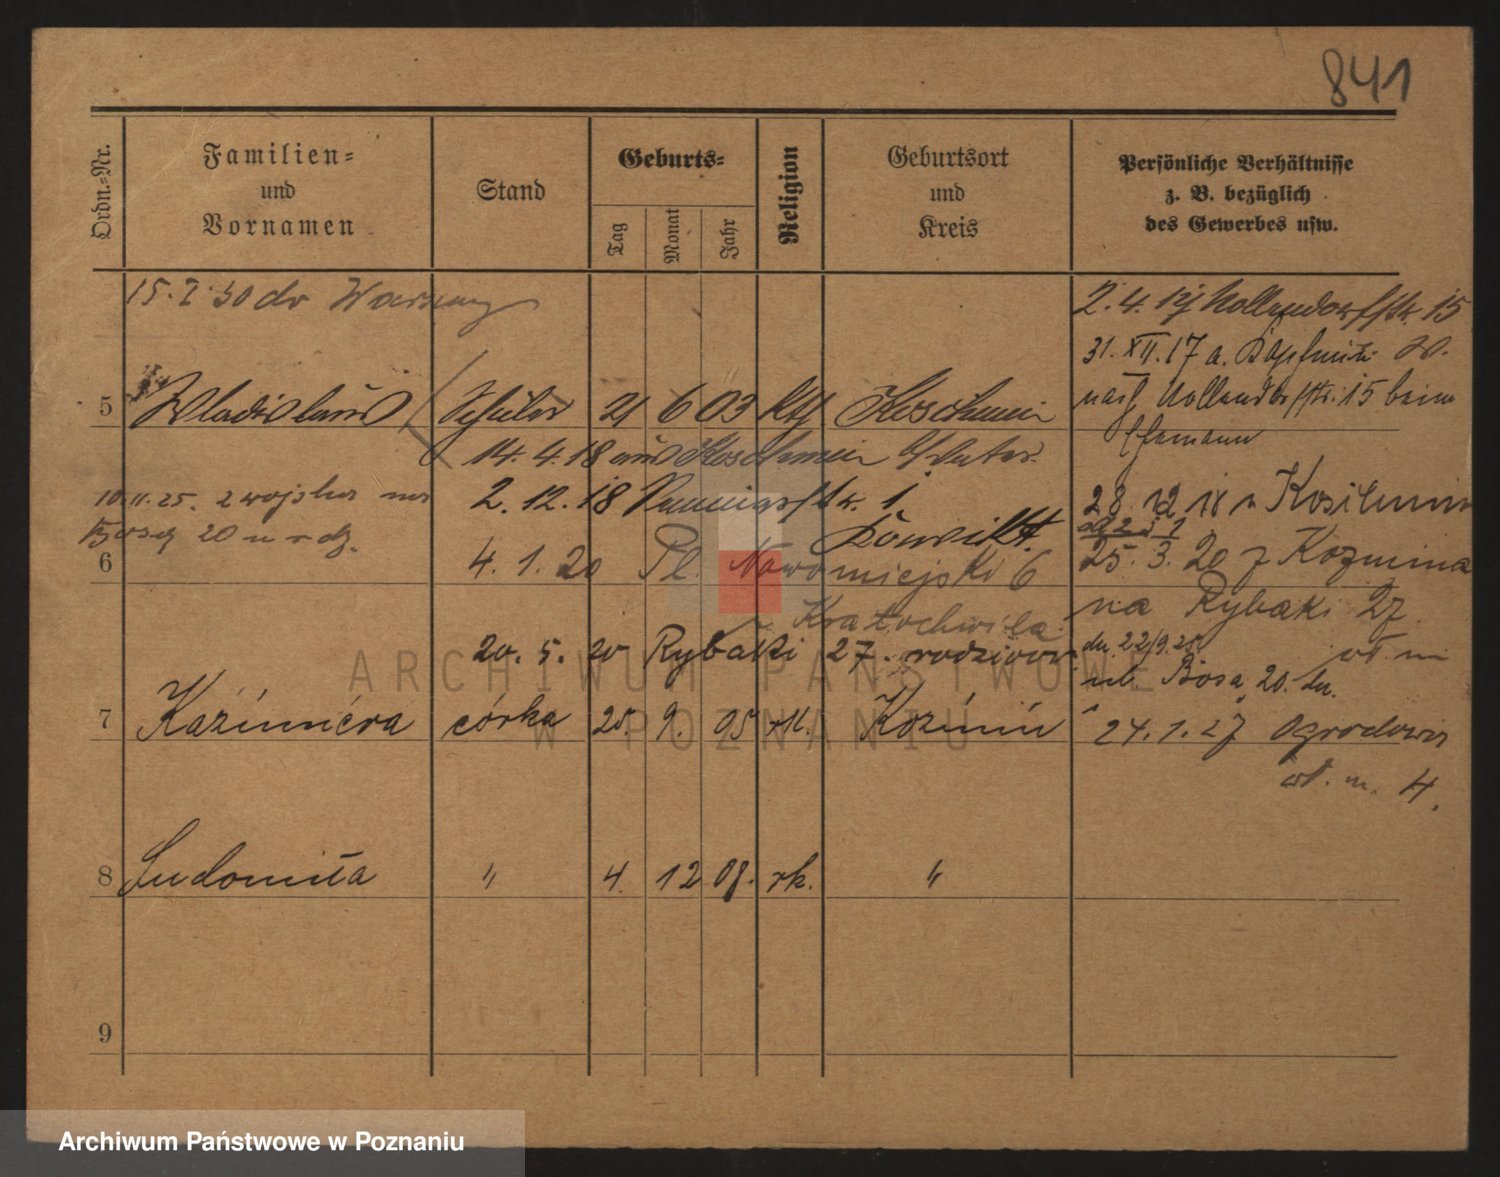 841
Ordn.-Nr.
Familien-
und
Vornamen
Stand
Geburts-
Tag
Monat
Jahr
Religion
Geburtsort
und
Kreis
Persönliche Verhältnisse
z. B. bezüglich
des Gewerbes usw.
15. I 30 do Warszawy
2. 4. 17 Nollendorfstr. 15
31. XII. 17 n.
5 Wladislaus Schüler 21 6 03 kth Koschmin
nach Nollendorfstr. 15 beim
Ehemann
14. 4. 18 aus Koschmin
10. 11. 25. z wojska na
2. 12. 18 1
28. 12 18 n Koschmin
Bosą 20 u rdz.
6
4. 1. 20 Pl. Nowomiejski 6
25. 3. 20 z Kozmina
Kratochwila
na Rybaki 27
20. 5. 20 Rybaki 27. rodziców.
dn. 22/9. 25.
ul. Bosa, 20. tu.
7 Kazimiera córka 25. 9. 05 rk. Kozmin
24. 1. 27 Ogrodowa
m. 4.
8 Ludomiła " 4. 12 08. rk. "
9
ARCHIWUM PAŃSTWOWE
W POZNANIU
Archiwum Państwowe w Poznaniu